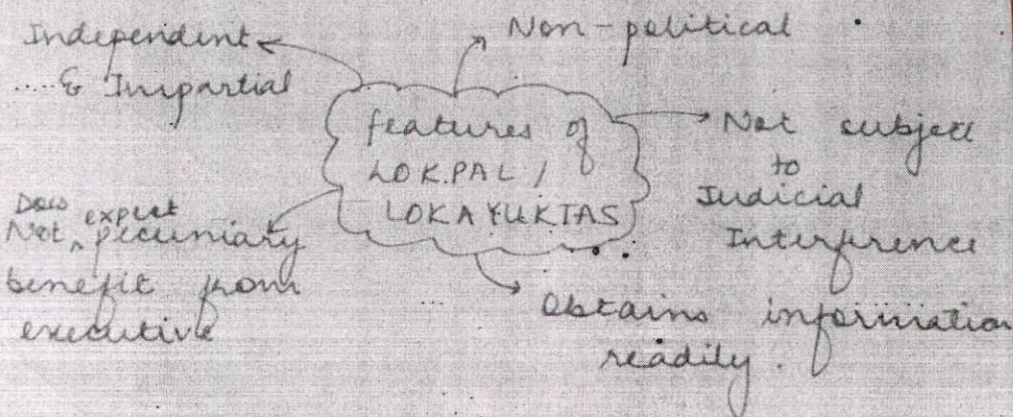 Independent
& Impartial
Non-political
features of
LOKPAL /
LOKAYUKTAS
Not subject
to
Judicial
Interference
Does expect
Not ^ pecuniary
benefit from
executive
Obtains information
readily.